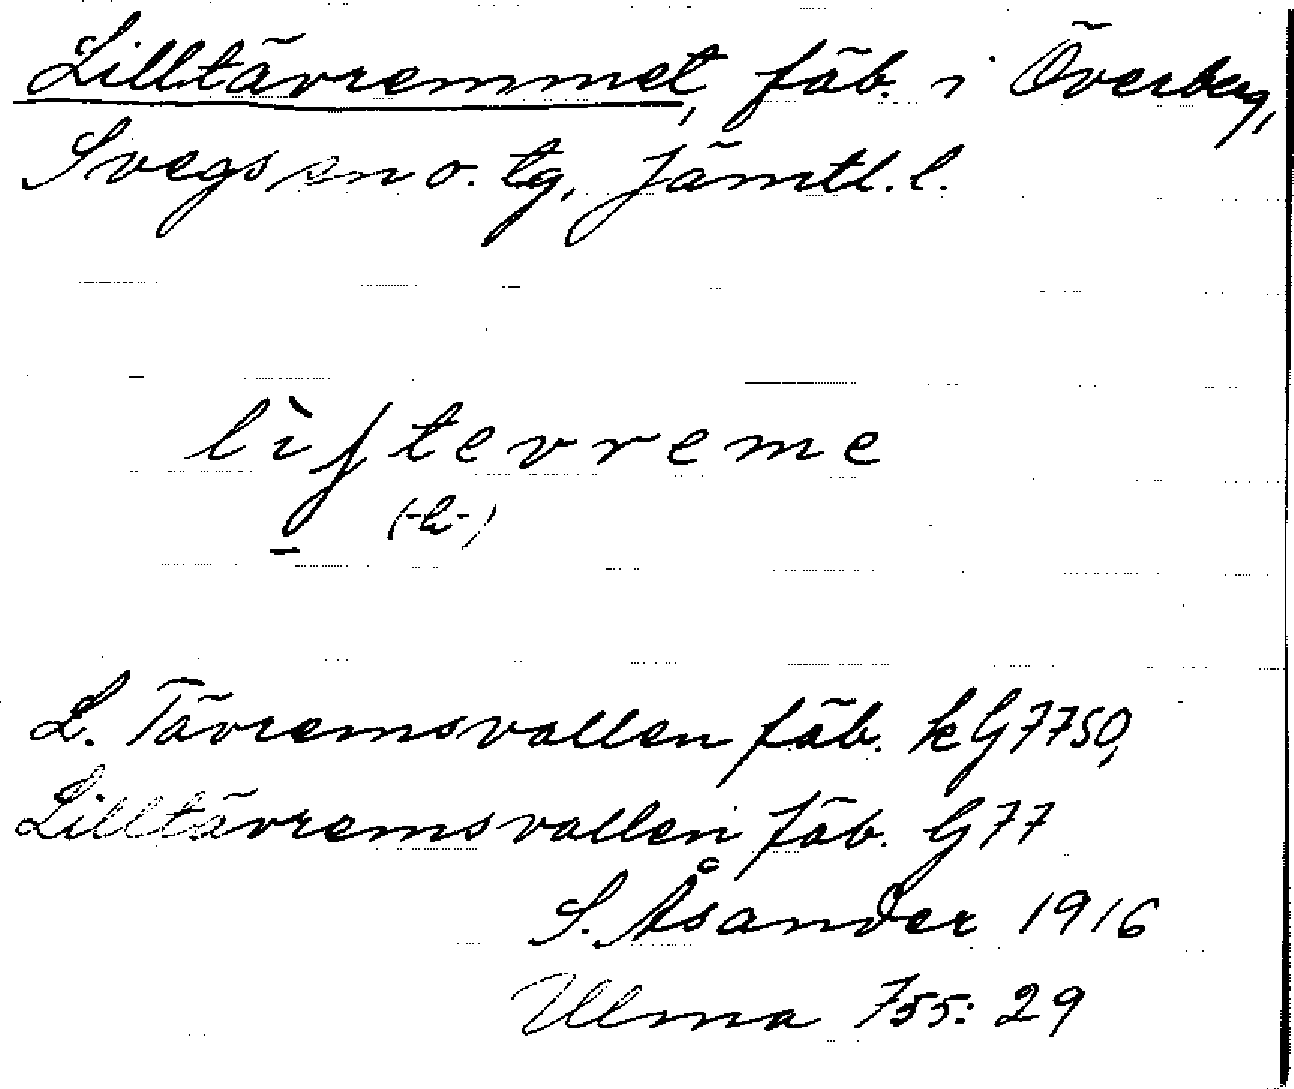 Lilltävremmet, fäb. i Överberg,
Svegs sn o. tg, Jämtl. l.
lìʃtevreme
(-h-)
L. Tävremsvallen fäb. k G7750,
Lilltävremsvallen fäb. G77
S. Åsander 1916
Ulma 755: 29